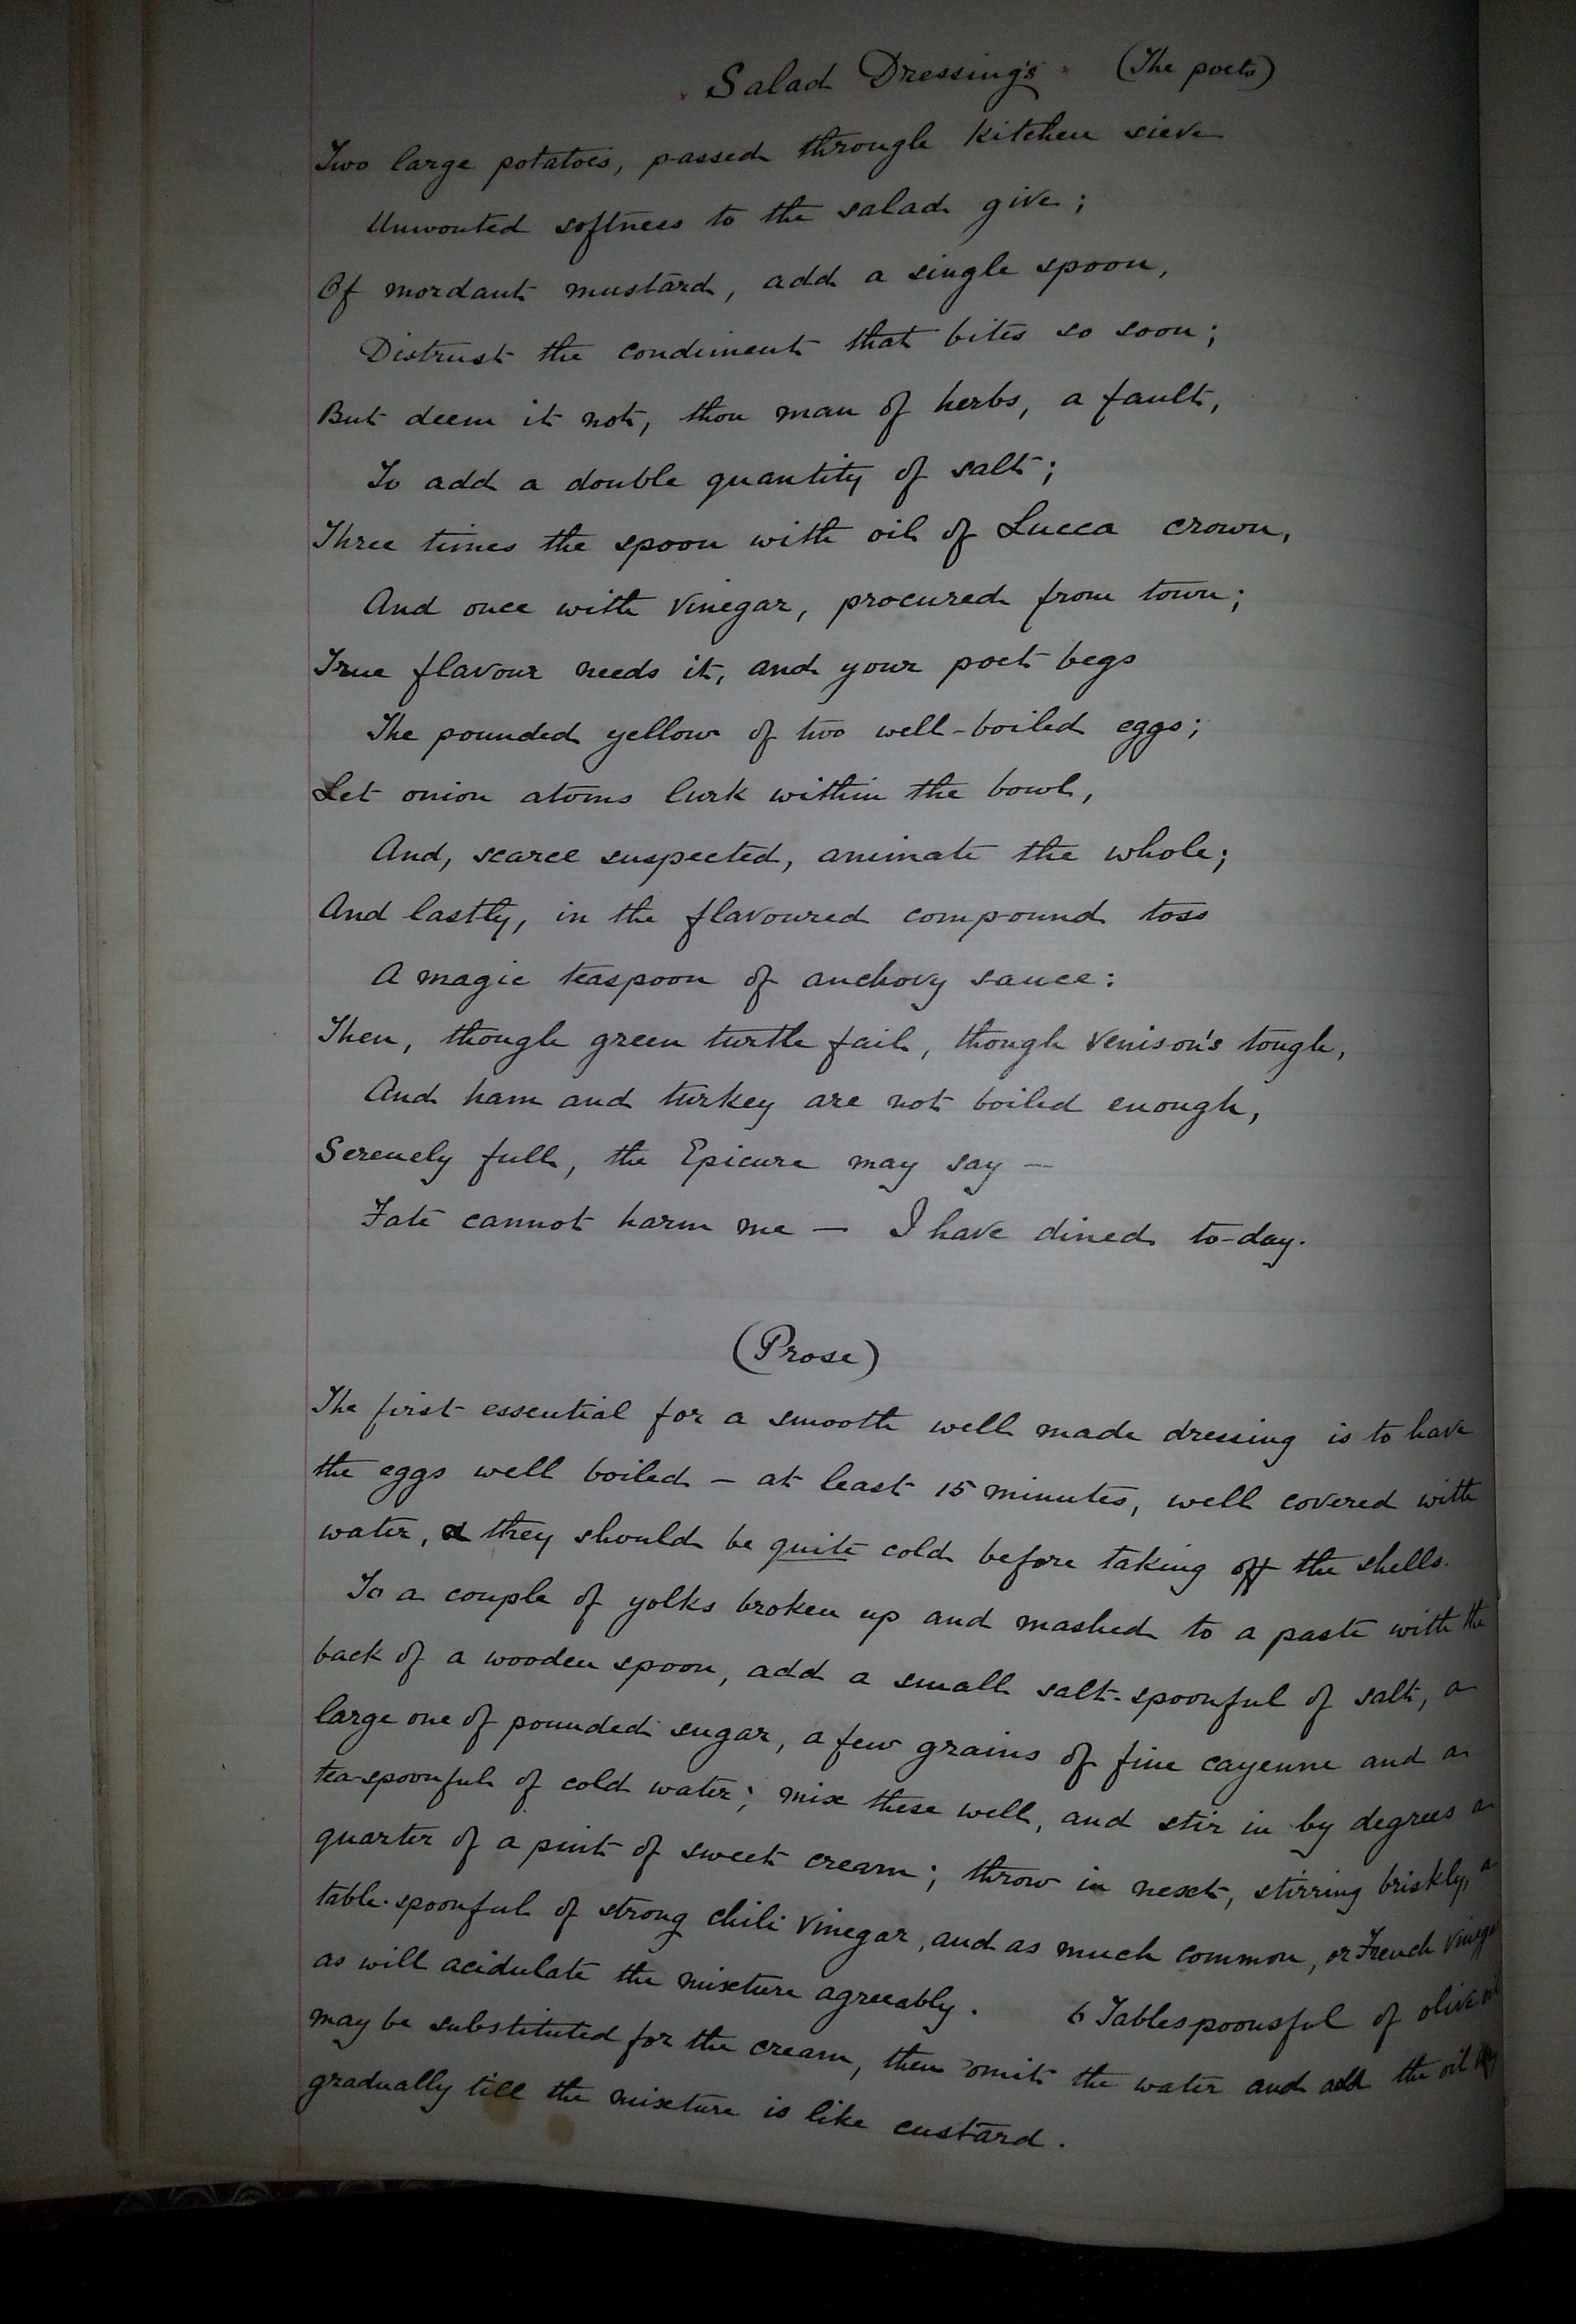 Salad Dressing's (The poets)
Two large potatoes, passed through kitchen sieve
Unwonted softness to the salad give;
Of mordant mustard, add a single spoon,
Distrust the condiment that bites so soon;
But deem it not, thou man of herbs, a fault,
To add a double quantity of salt;
Three times the spoon with oil of Lucca crown,
And once with vinegar, procured from town;
True flavour needs it, and your poet begs
The pounded yellow of two well-boiled eggs;
Let onion atoms lurk within the bowl,
And, scarce suspected, animate the whole;
And lastly, in the flavoured compound toss
A magic teaspoon of anchovy sauce:
Then, though green turtle fail, though venison's tough,
And ham and turkey are not boiled enough,
Serenely full, the Epicure may say —
Fate cannot harm me — I have dined to-day.
(Prose)
The first essential for a smooth well made dressing is to have
the eggs well boiled — at least 15 minutes, well covered with
water, & they should be quite cold before taking off the shells.
To a couple of yolks broken up and mashed to a paste with the
back of a wooden spoon, add a small salt-spoonful of salt, a
large one of pounded sugar, a few grains of fine cayenne and a
tea-spoonful of cold water; mix these well, and stir in by degrees a
quarter of a pint of sweet cream; throw in next, stirring briskly, a
table-spoonful of strong chili vinegar, and as much common, or French vinegar
as will acidulate the mixture agreeably. 6 Tablespoonsful of olive oil
may be substituted for the cream, then omit the water and add the oil
gradually till the mixture is like custard.